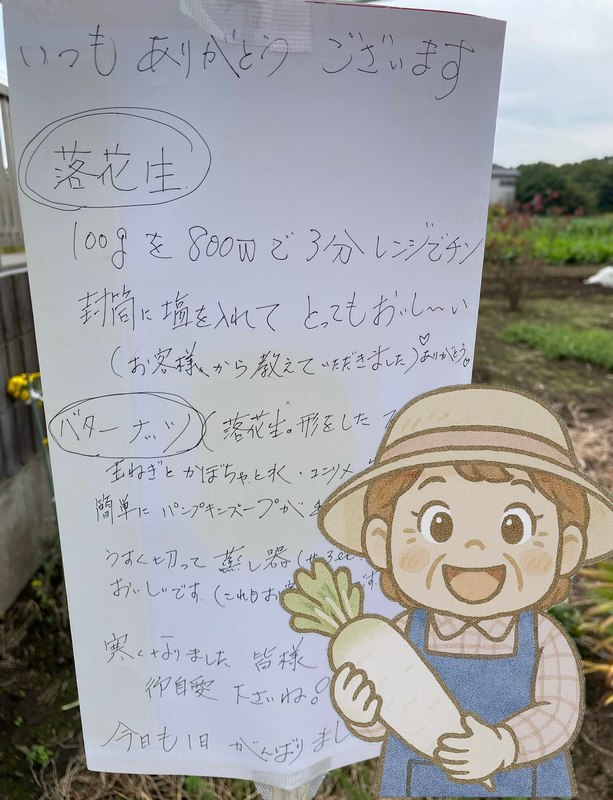 いつも ありがとう ございます
落花生
100gを 800Wで 3分 レンジでチン
封筒に 塩を入れて とってもおいし〜い
(お客様から教えていただきました)♡ありがとう♡
バターナッツ(落花生の形をした
玉ねぎと かぼちゃと水・コンソメ
簡単に パンプキンスープが
うすく切って 蒸し器
おいしいです。(これもお
寒くなりました 皆様
御自愛 下さいね。
今日も1日 がんばりまし